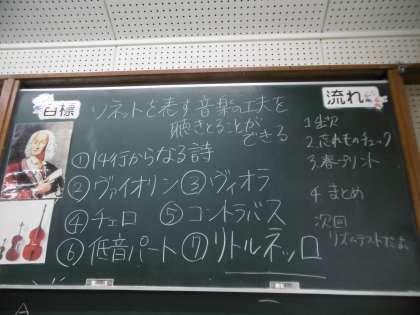 目標
ソネットを表す音楽の工夫を
聴きとることが
できる
①14行からなる詩
②ヴァイオリン ③ヴィオラ
④チェロ ⑤コントラバス
⑥低音パート ⑦リトルネッロ
流れ
2.忘れものチェック
3.春プリント
4 まとめ
次回
リズムテストだよ